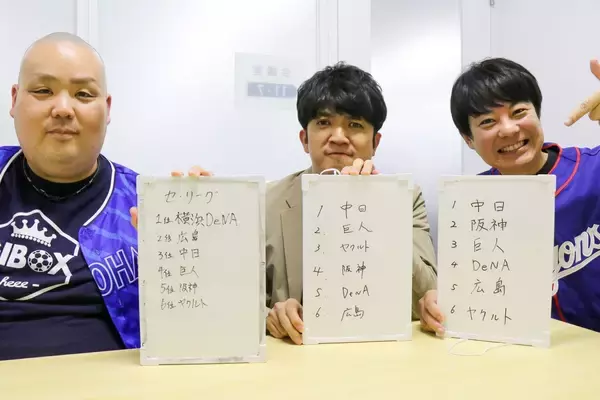 セ・リーグ
1位 横浜DeNA
2位 広島
3位 中日
4位 巨人
5位 阪神
6位 ヤクルト
1 中日
2 巨人
3 ヤクルト
4 阪神
5 DeNA
6 広島
1 中日
2 阪神
3 巨人
4 DeNA
5 広島
6 ヤクルト